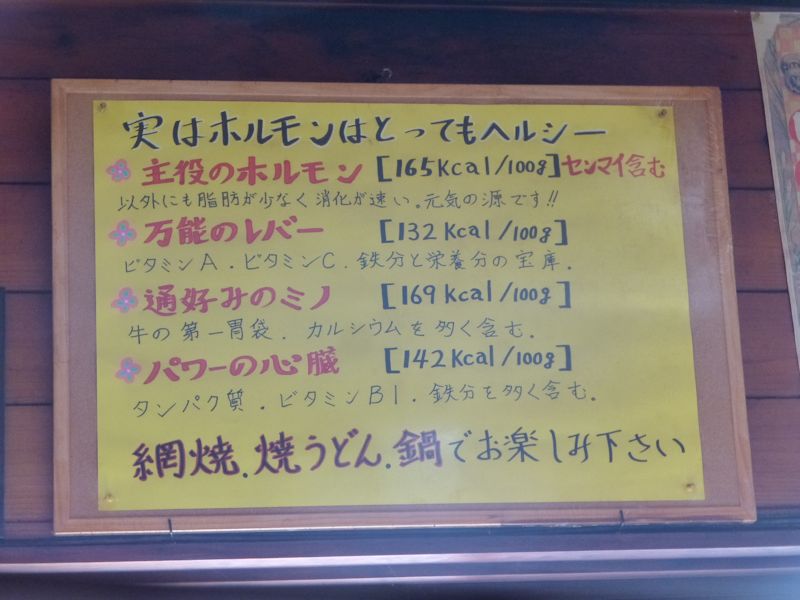 実はホルモンはとってもヘルシー
主役のホルモン [165Kcal/100g]センマイ含む
以外にも脂肪が少なく消化が速い。元気の源です!!
万能のレバー [132Kcal/100g]
ビタミンA.ビタミンC.鉄分と栄養分の宝庫.
通好みのミノ [169Kcal/100g]
牛の第一胃袋.カルシウムを多く含む.
パワーの心臓 [142Kcal/100g]
タンパク質.ビタミンB1.鉄分を多く含む.
網焼.焼うどん.鍋でお楽しみ下さい